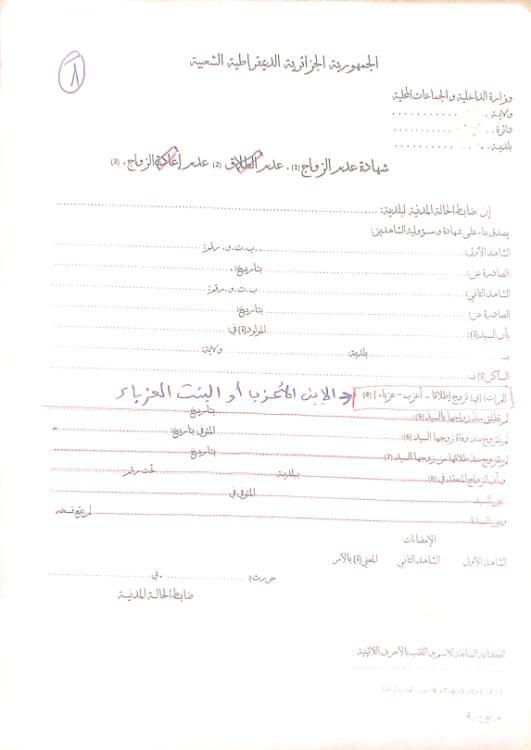 ٨
الجمهورية الجزائرية الديمقراطية الشعبية
وزارة الداخلية والجماعات المحلية
ولاية
دائرة
بلدية
شهادة عدم الزواج (1) . عدم الطلاق (2) عدم إعادة الزواج . (3)
إن ضابط الحالة المدنية لبلدية:
يصدق بناء على شهادة ومسؤولية الشاهدين:
الشاهد الأول: ب.ت.و. رقم:
الصادرة عن: بتاريخ:
الشاهد الثاني: ب.ت.و. رقم:
الصادرة عن: بتاريخ:
بأن السيد(ة): المولود(ة) في:
بـ بلدية: ولاية:
الساكن(ة) بـ
إطلاقا - أعزب - عزباء . (4) الابن الأعزب أو البنت العزباء
لم تطلق منذ زواجها بالسيد (5) بتاريخ
لم تتزوج منذ وفاة زوجها السيد (6) المتوفي بتاريخ
لم تتزوج منذ طلاقها من زوجها السيد (7) بتاريخ
وبأن الزواج المنعقد في (8) بلدية تحت رقم
بين السيد المتوفي في
وبين السيدة لم يقع فسخه
الإمضاءات
الشاهد الأول الشاهد الثاني المعني(ة) بالأمر
حررت: في
ضابط الحالة المدنية
الكتابة السابقة للاسم و اللقب بالأحرف اللاتينية